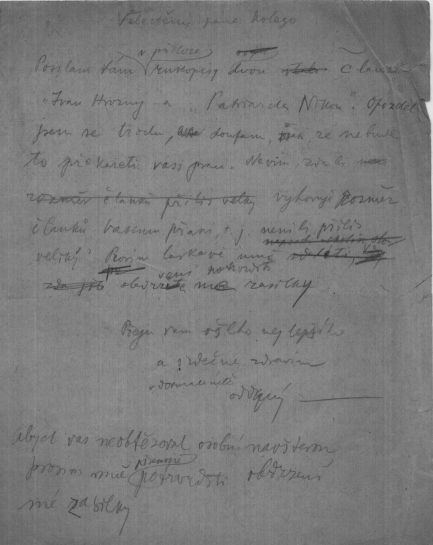 Velectěný pane kolego
v příloze
Posílám Vám rukopisy dvou článků
"Ivan Hrozný" a "Patriarcha Nikon". Opozdil
jsem se trochu, doufám, že nebude
to překážeti vaší práci. Nevím, zda
rozměr článků příliš velký vyhovují rozměr
článků Vašemu přání, t. j. není-li příliš
veliký. Prosím laskavě
obdržení mé zásilky
Přeji vám všeho nejlepšího
a srdečně zdravím
oddaný
abych vás neobtěžoval osobní návštěvou
prosím mně písemně potvrditi obdržení
mé zásilky